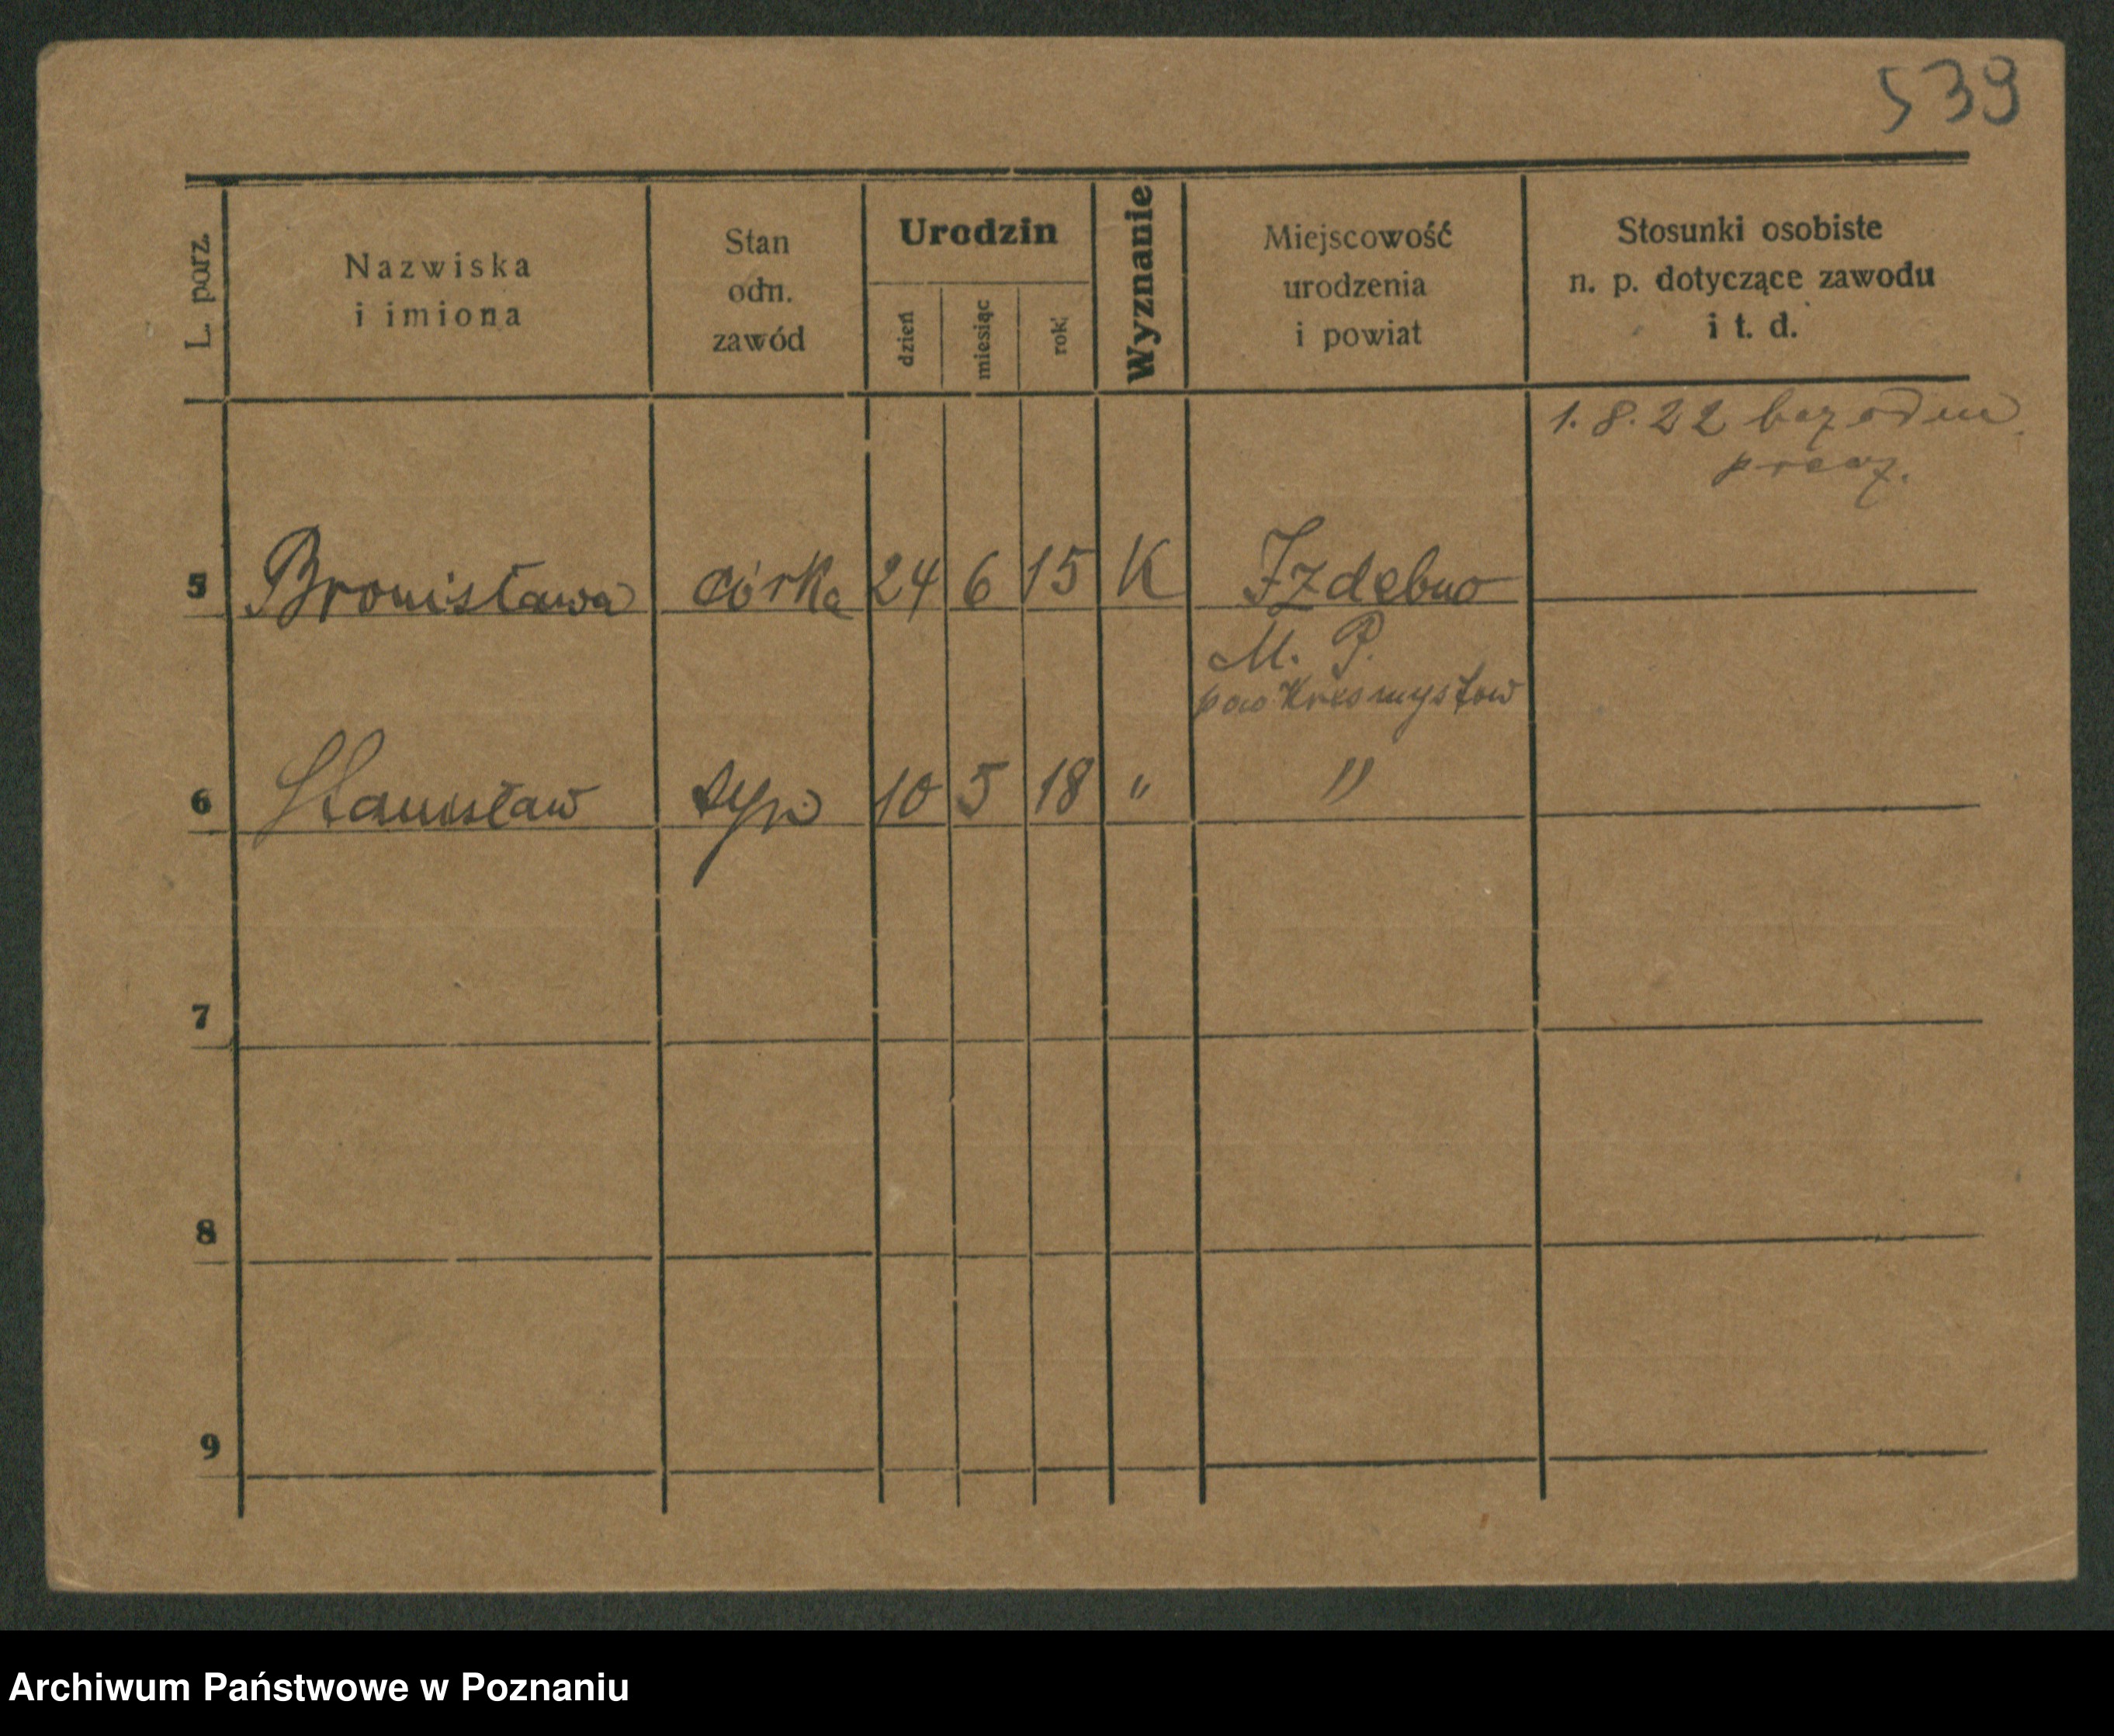 539
L. porz.
Nazwiska
i imiona
Stan
odn.
zawód
Urodzin
dzień
miesiąc
rok
Wyznanie
Miejscowość
urodzenia
i powiat
Stosunki osobiste
n. p. dotyczące zawodu
i t. d.
1. 8. 22
5 Bronisława córka 24 6 15 K Izdebno
M. P.
6 Stanisław syn 10 5 18 " "
7
8
9
Archiwum Państwowe w Poznaniu